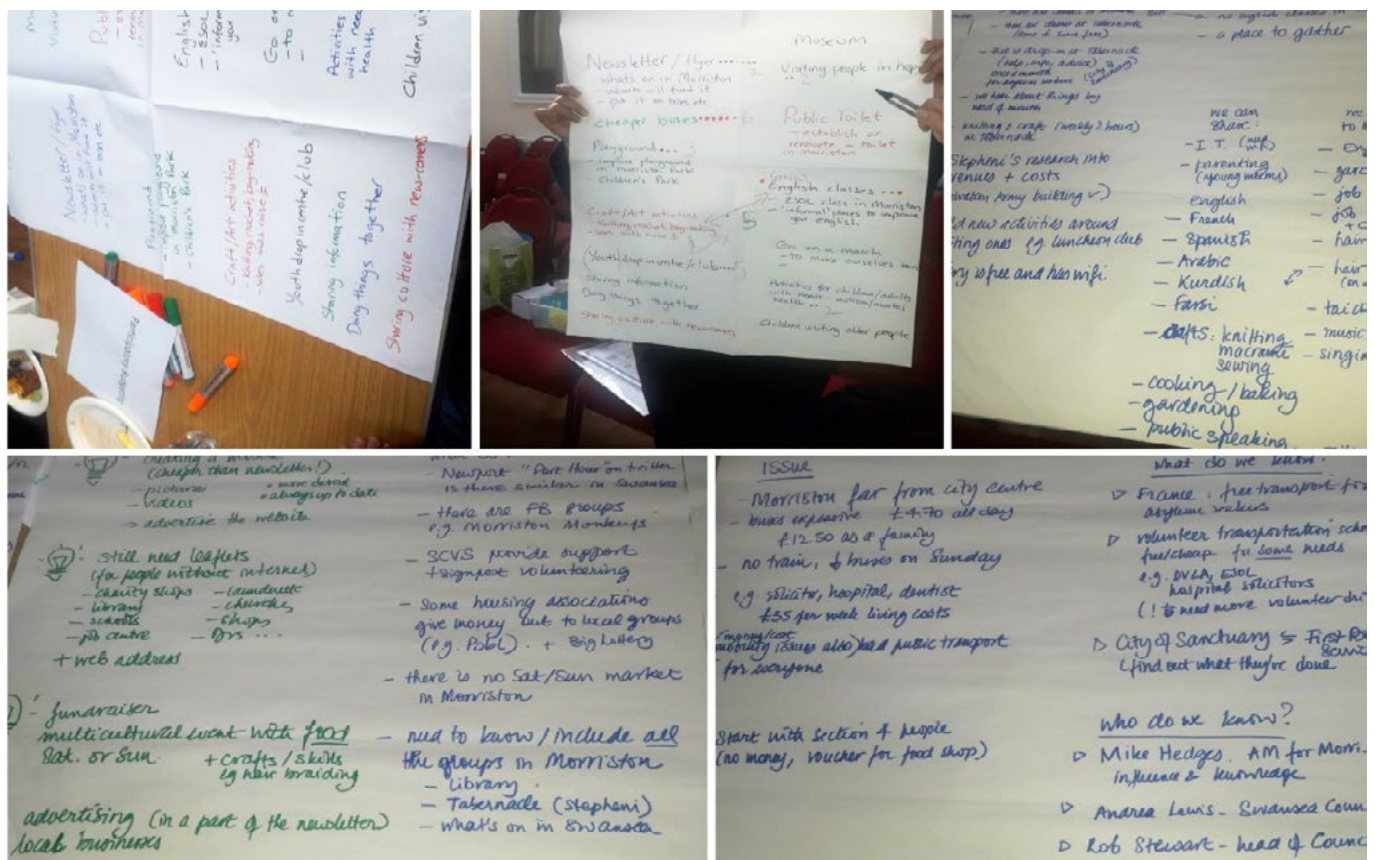 Public
English
- ESOL
- "inform
you
Go on
- to m
Activities
with need
health
Children vis
Newsletter/flyer
- whats on in Morriston
- adverts will fund it
- put it on buses etc
Playground
- improve playground
in morriston Park
- Children's Park
Craft/Art activities
- knitting/crochet, bag making
- sales auks raise £
Youth drop in centre/club
Sharing information
Doing things together
Sharing culture with new-comers
Museum
Newsletter/flyer
- whats on in Morriston
- adverts will fund it
- put it on buses etc
cheaper buses
Playground
- improve playground
in morriston Park
- Children's Park
Craft/Art activities
- knitting/crochet, bag making
(Youth drop in centre/club
Sharing information
Doing things together
Sharing culture with newcomers
Visiting people in
2
Public Toilet
- establish or
renovate - toilet
in morriston
English classes
- ESOL class in Morriston
- "informal" places to improve
your english.
5
Go on a march
- to make ourselves
Activities for children/adults
with needs - autism/mental
health
Children visiting older people
- no english classes in
- a place to gather
- there is drop-in at Tabernacle
(help, info, advice) &
once a month
for asylum seekers
- we hear about things by
word of mouth
- knitting & craft (weekly 2 hours)
at Tabernacle
Stepheni's research into
venues + costs
vation Army building ✓)
d new activities around
ting ones e.g. luncheon club
ry is free and has wifi
we can
share:
- I.T.
- parenting
(young mums)
english
- French
- Spanish
- Arabic
- Kurdish
- Farsi
- crafts: knitting
macrame
sewing
- cooking/baking
- gardening
- public speaking
we
to
- gard
- job
- job
+ c
- hair
- hair
- tai ch
- music
- singin
(cheaper than newsletter!)
- pictures • more detail
- videos • always up to date
→ advertise the website
- still need leaflets
(for people without internet)
- charity shops - launderette
- library - churches
- schools - shops
- job centre - Drs ...
+ web address
- fundraiser
multicultural event with food
Sat. or Sun. + crafts/skills
eg hair braiding
advertising (in a part of the newsletter)
local businesses
- Newport "Port Hour" on twitter
is there similar in Swansea
- there are FB groups
e.g. Morriston Monkeys
- SCVS provide support
+ signpost volunteering
- Some housing associations
give money out to local groups
(e.g. Pobl). + Big Lottery
- there is no Sat/Sun market
in Morriston
- need to know/include all
the groups in Morriston
- Library
- Tabernacle (Stepheni)
- what's on in Swansea
ISSUE
- Morriston far from city centre
- buses expensive £4.70 all day
£12.50 as a family
- no train, buses on Sunday
e.g. solicitor, hospital, dentist
£35 per week living costs
money/cost
mobility issues also) bad public transport
for everyone
Start with section of people
(no money, voucher for food shop)
What do we know?
▷ France: free transport for
asylum seekers
▷ volunteer transportation sche
free/cheap for some needs
e.g. DVLA, ESOL
hospital solicitors
(! need more volunteer dri
▷ City of Sanctuary
(find out what they've done
who do we know?
▷ Mike Hedges. AM for Morri
influence & knowledge
▷ Andrea Lewis - Swansea Coun
▷ Rob Stewart - head of Counc